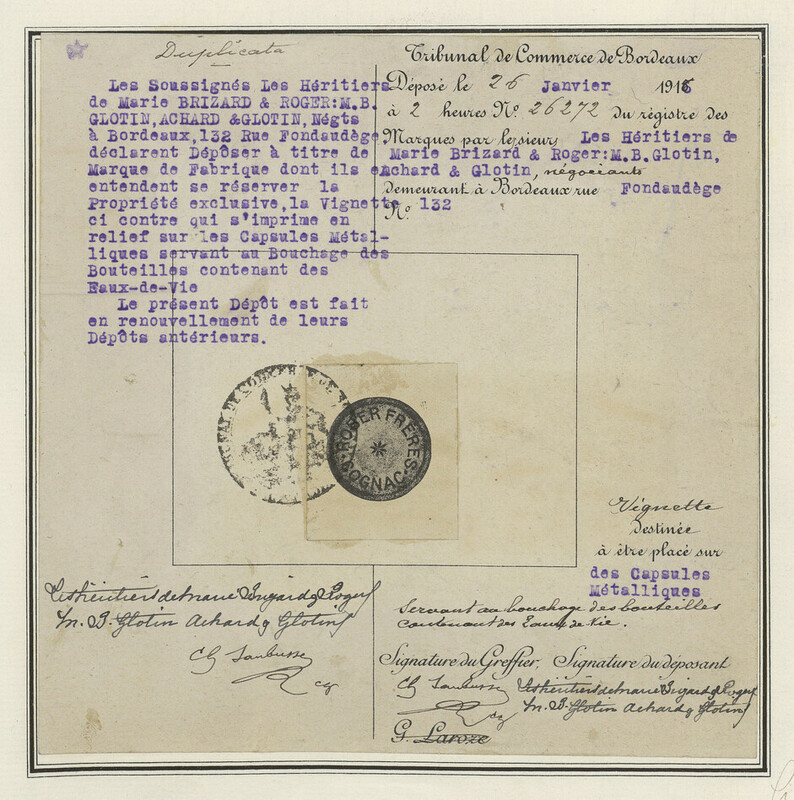 Duplicata
Les Soussignés Les Héritiers
de Marie BRIZARD & ROGER:M.B.
GLOTIN,ACHARD &GLOTIN,Négts
à Bordeaux,132 Rue Fondaudège
déclarent Dépôser à titre de
Marque de Fabrique dont ils
entendent se réserver la
Propriété exclusive,la Vignette
ci contre qui s'imprime en
relief sur les Capsules Métal-
liques servant au Bouchage des
Bouteilles contenant des
Eaux-de-Vie
Le présent Dépôt est fait
en renouvellement de leurs
Dépôts antérieurs.
Tribunal de Commerce de Bordeaux
Déposé le 26 Janvier 1915
à 2 heures N° 26272 du régistre des
Marques par le sieur Les Héritiers de
Marie Brizard & Roger:M.B.Glotin,
Achard & Glotin, négociants
demeurant à Bordeaux rue Fondaudège
N° 132
ROBER FRÈRES
COGNAC
Vignette
destinée
à être placé sur
des Capsules
Métalliques
Servant au bouchage des bouteilles
contenant des Eaux de Vie.
Les héritiers de Marie Brizard & Roger
M. B. Glotin Achard & Glotin
Signature du Greffier, Signature du déposant
Les héritiers de Marie Brizard & Roger
M. B. Glotin Achard & Glotin
G. Laroze